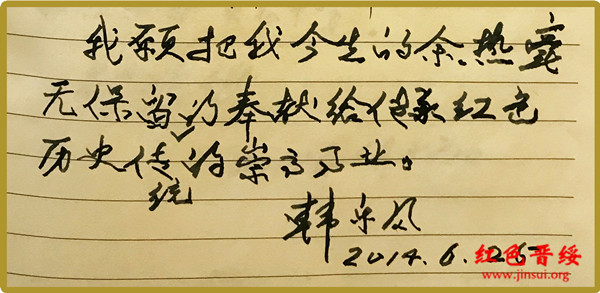 我愿把我今生的余热毫
无保留的奉献给传承红色
历史传统的崇高事业。
韩
2014.6.
红色晋绥
www.jinsui.org